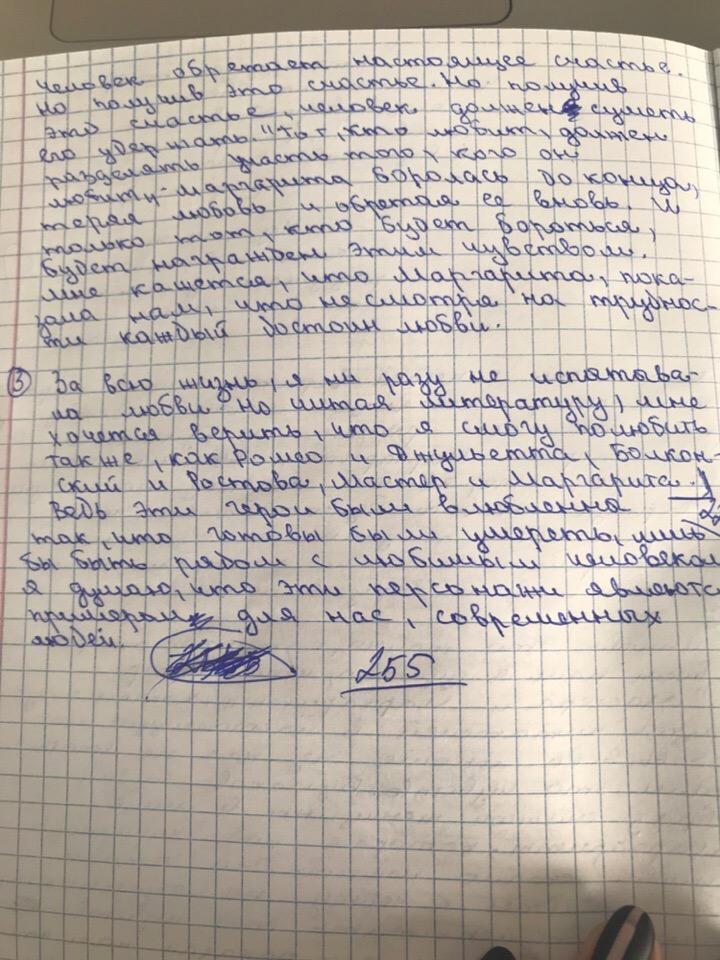 человек обретает настоящее счастье.
Но получив это счастье. Но получив
это счастье, человек должен суметь
его удержать. "Тот, кто любит, должен
разделять участь того, кого он
любит"-Маргарита боролась до конца,
теряя любовь и обретая ее вновь. И
только тот, кто будет бороться,
будет награжден этим чувством.
Мне кажется, что Маргарита, пока-
зала нам, что не смотря на труднос-
ти каждый достоин любви.
3 За всю жизнь, я ни разу не испытыва-
ла любви но читая литературу, мне
хочется верить, что я смогу полюбить
также, как Ромео и Джульетта, Болкон-
ский и Ростова, Мастер и Маргарита.
Ведь эти герои были влюбленна
так, что готовы были умереть, лишь
бы быть рядом с любимым человеком
я думаю, что эти персонажи являются
примером для нас, современных
людей.
255